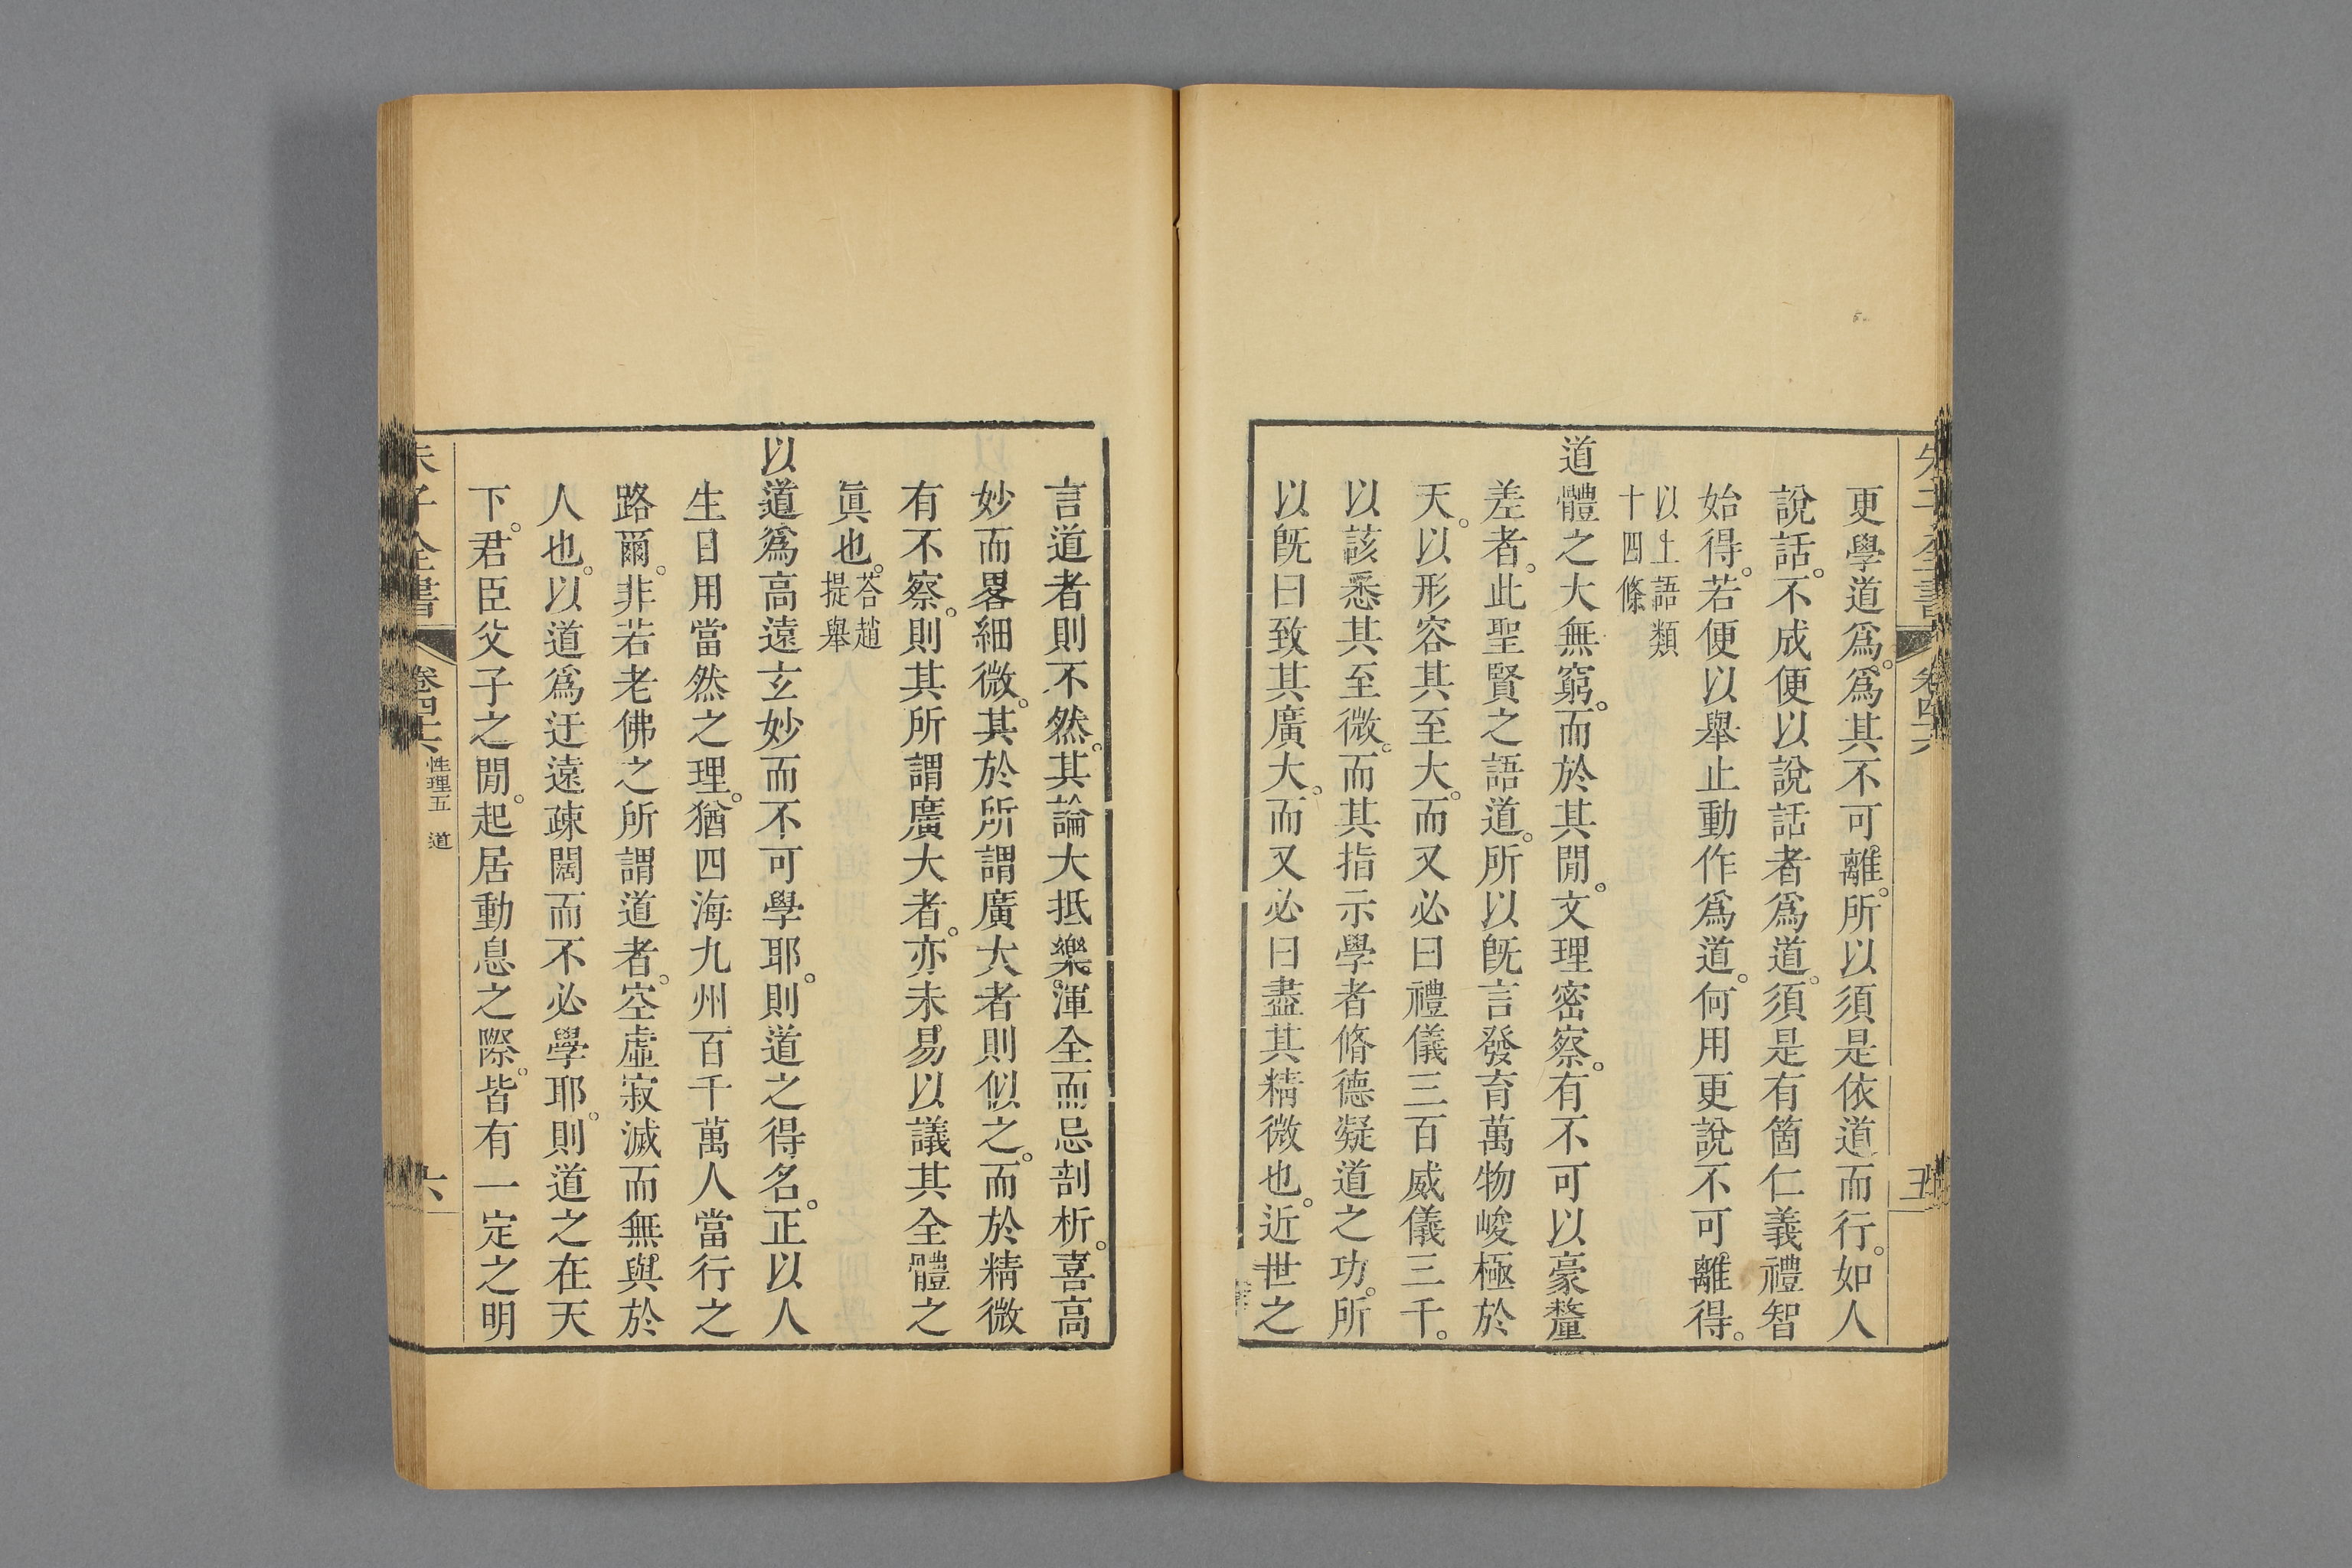 朱子全書 卷四十六 五
更學道爲。爲其不可離。所以須是依道而行。如人
說話。不成便以說話者爲道。須是有箇仁義禮智
始得。若便以舉止動作爲道。何用更說不可離得。
以上語類
十四條
道體之大無窮。而於其閒。文理密察。有不可以豪釐
差者。此聖賢之語道。所以旣言發育萬物峻極於
天。以形容其至大。而又必曰禮儀三百威儀三千。
以該悉其至微。而其指示學者脩德凝道之功。所
以旣曰致其廣大。而又必曰盡其精微也。近世之
言道者則不然。其論大抵樂。渾全而忌剖析。喜高
妙而畧細微。其於所謂廣大者則似之。而於精微
有不察。則其所謂廣大者。亦未易以議其全體之
眞也。荅趙
提舉
以道爲高遠玄妙而不可學耶。則道之得名。正以人
生日用當然之理。猶四海九州百千萬人當行之
路爾。非若老佛之所謂道者。空虛寂滅而無與於
人也。以道爲迂遠疎闊而不必學耶。則道之在天
下。君臣父子之閒。起居動息之際。皆有一定之明
朱子全書 卷四十六 性理五 道 六